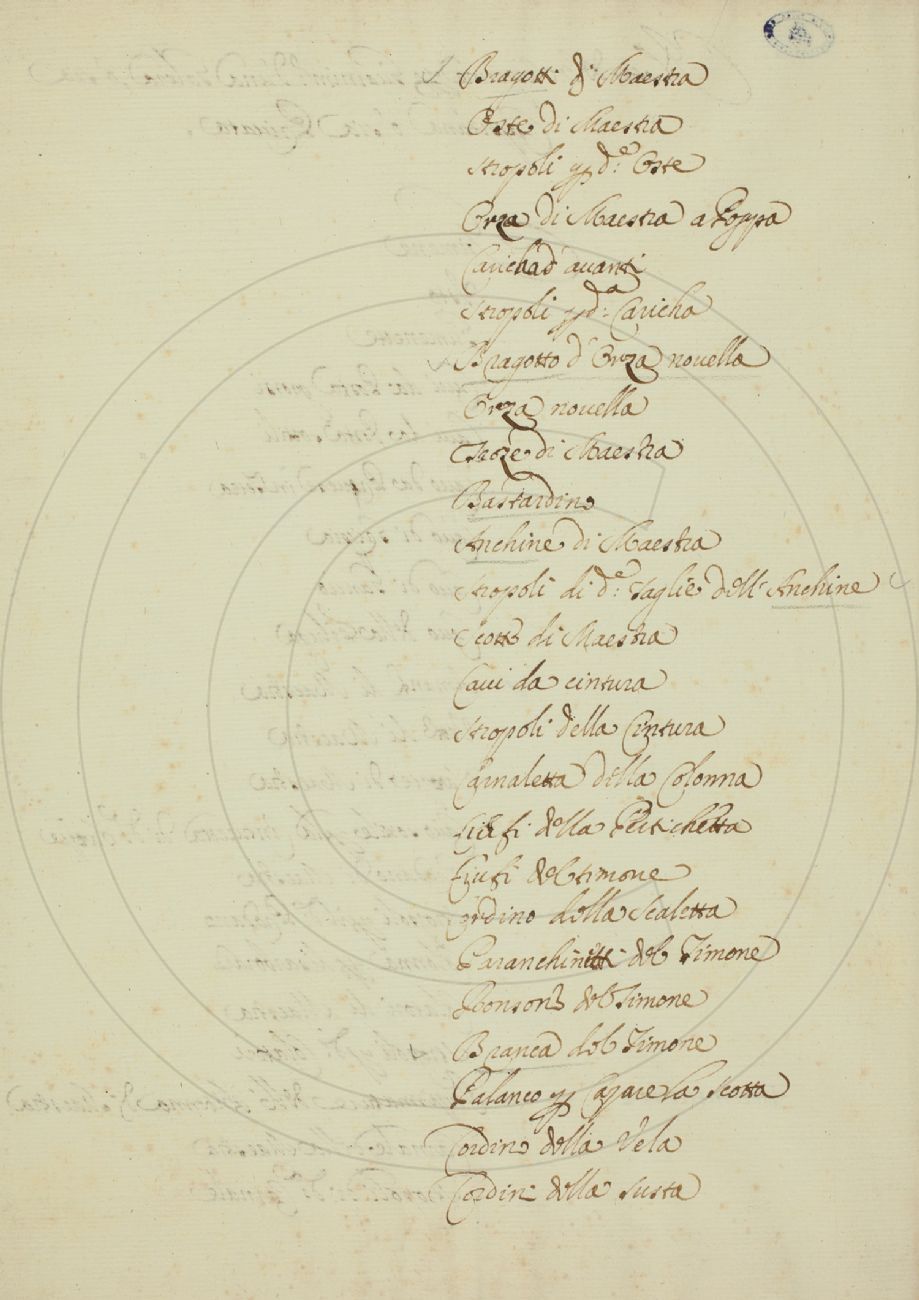 Bragotti di Maestra
Oste di Maestra
Stropoli p d.e Oste
Orza di Maestra a Poppa
Caricha d'auanti
Stropoli p d.a Caricha
Bragotto d'Orza nouella
Orza nouella
Troze di Maestra
Bastardino
Anchine di Maestra
Stropoli di d.e Taglie dell'Anchine
Scotte di Maestra
Caui da cintura
Stropoli della Cintura
della Colonna
della Pertichetta
del timone
Cordino della Scaletta
Paranchinetti del Timone
del Timone
Branca del Timone
Palanco p Cazare la Scotta
Cordino della Vela
Cordin della Susta